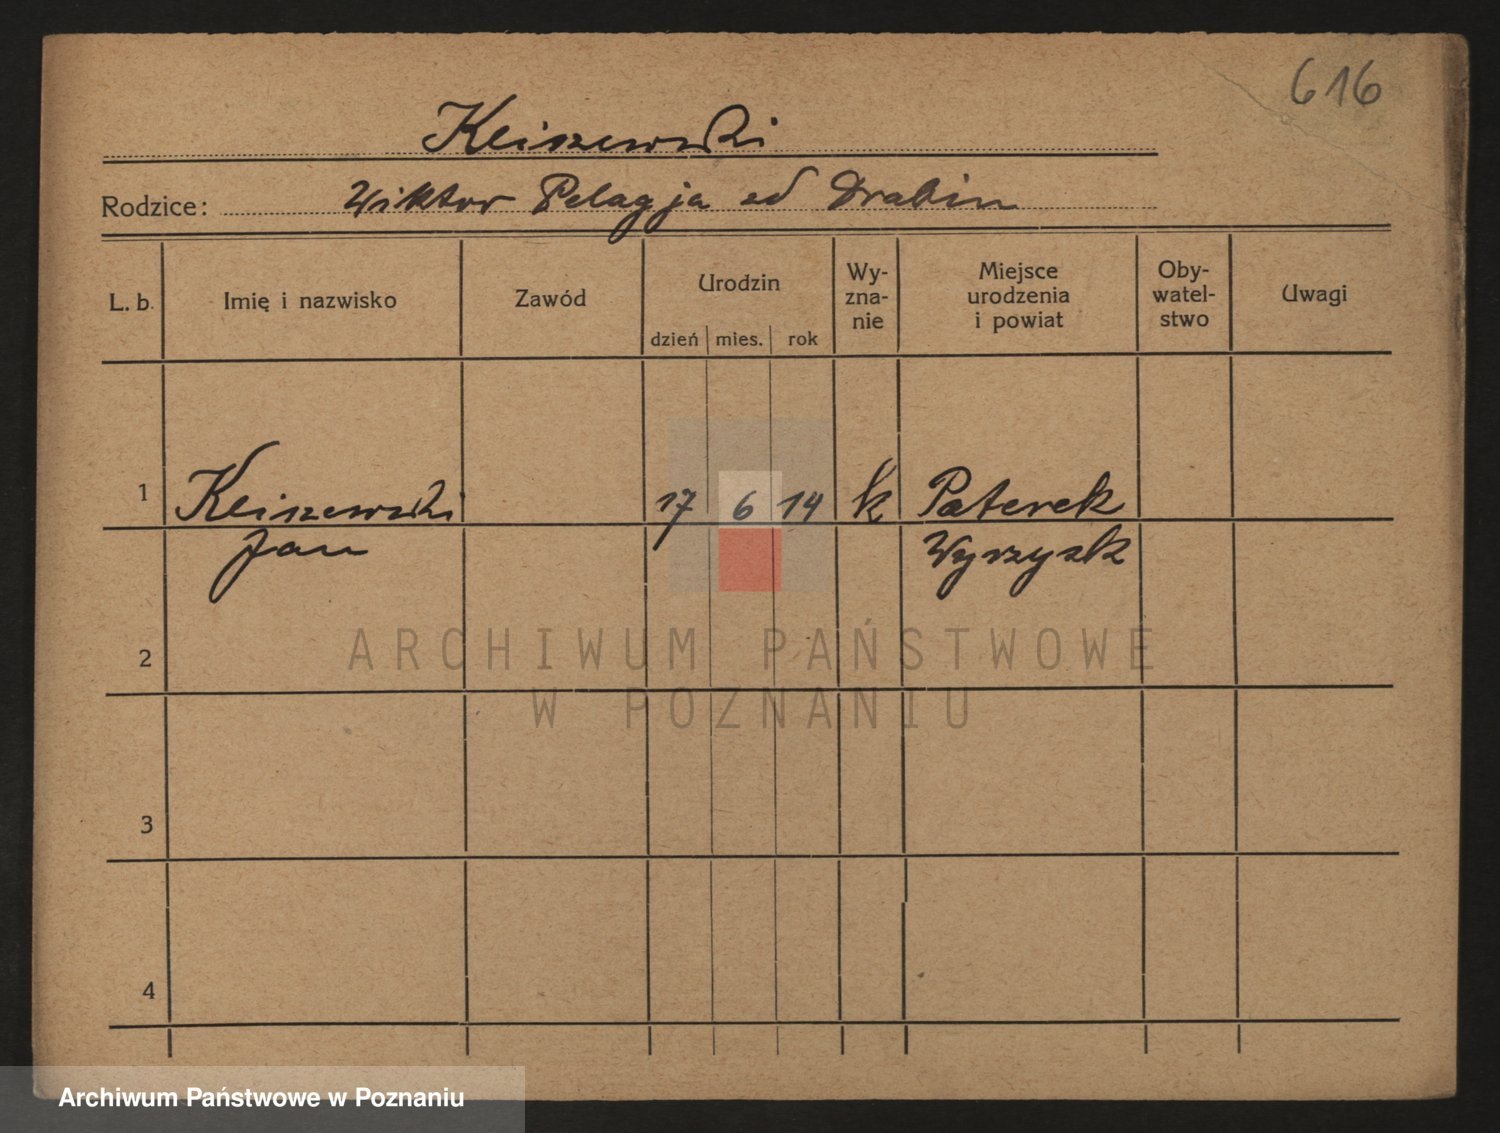 616
Kliszewski
Rodzice: Wiktor Pelagja zd Drabin
L. b. Imię i nazwisko Zawód Urodzin dzień mies. rok Wy-zna-nie Miejsce urodzenia i powiat Oby-watel-stwo Uwagi
1 Kliszewski 17 6 14 k Paterek
Jan Wyrzysk
2
ARCHIWUM PAŃSTWOWE
W POZNANIU
3
4
Archiwum Państwowe w Poznaniu